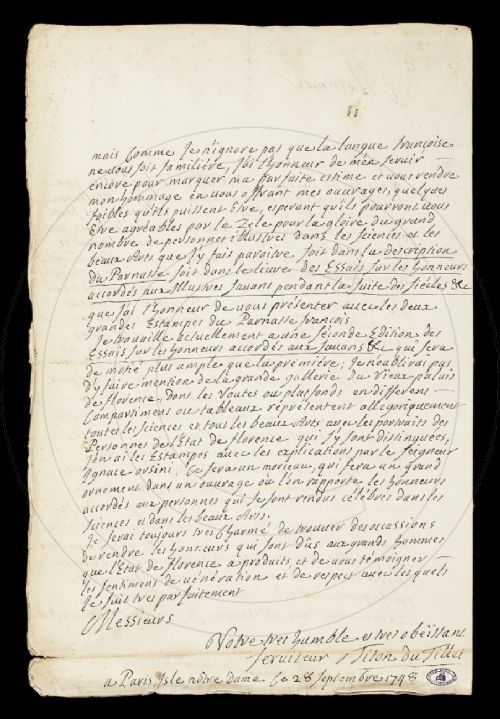 mais Comme Je n'ignore pas que la langue françoise
ne vous soit familiére, J'ai l'honneur de m'en servir
encore pour marquer ma parfaite estime et vous rendre
mon hommage en vous offrant mes ouvrages, quelques
foibles qu'ils puissent Etre, esperant qu'ils pourront vous
Etre agréables par le Zele pour la gloire du grand
nombre de personnes illustres dans les sciences et les
beaux Arts que J'y fait paroitre, soit dans la Description
du Parnasse soit dans le livre des Essais sur les honneurs
accordés aux Illustres savans pendant la suite des siécles &c
que J'ai l'honneur de vous présenter avec les deux
grandes Estampes du Parnasse francois.
Je travaille actuellement a une séconde Edition des
Essais sur les honneurs accordés aux savans &c qui sera
de motié plus ample que la prémiére; Je n'oublirai pas
d'y faire mention de la grande gallerie du Vieux palais
de florence, dont les Voutes ou plafonds en differens
Compartimens ou tableaux réprésentent allegoriquement
toutes les sciences et tous les beaux Arts avec les portraits des
Personnes de l'Etat de florence qui s'y sont distinguées,
J'en ai les Estampes avec les explications par le seigneur
Ignace orsini; Ce sera un morceau, qui sera un grand
ornement dans un ouvrage ou l'on rapporte les honneurs
accordés aux personnes qui se sont rendus célébres dans les
sciences et dans les beaux Arts.
Je serai toujours tres Charmé de trouver des occassions
de rendre les honneurs qui sont dus aux grands hommes
que l'Etat de florence a produits, et de vous témoigner
les sentiment de vénération et de respect avec les quels
Je suis tres parfaitement
Messieurs
Votre tres humble et tres obéissant
serviteur Titon du Tillet
a Paris, Isle notre dame, ce 28 septembre 1748